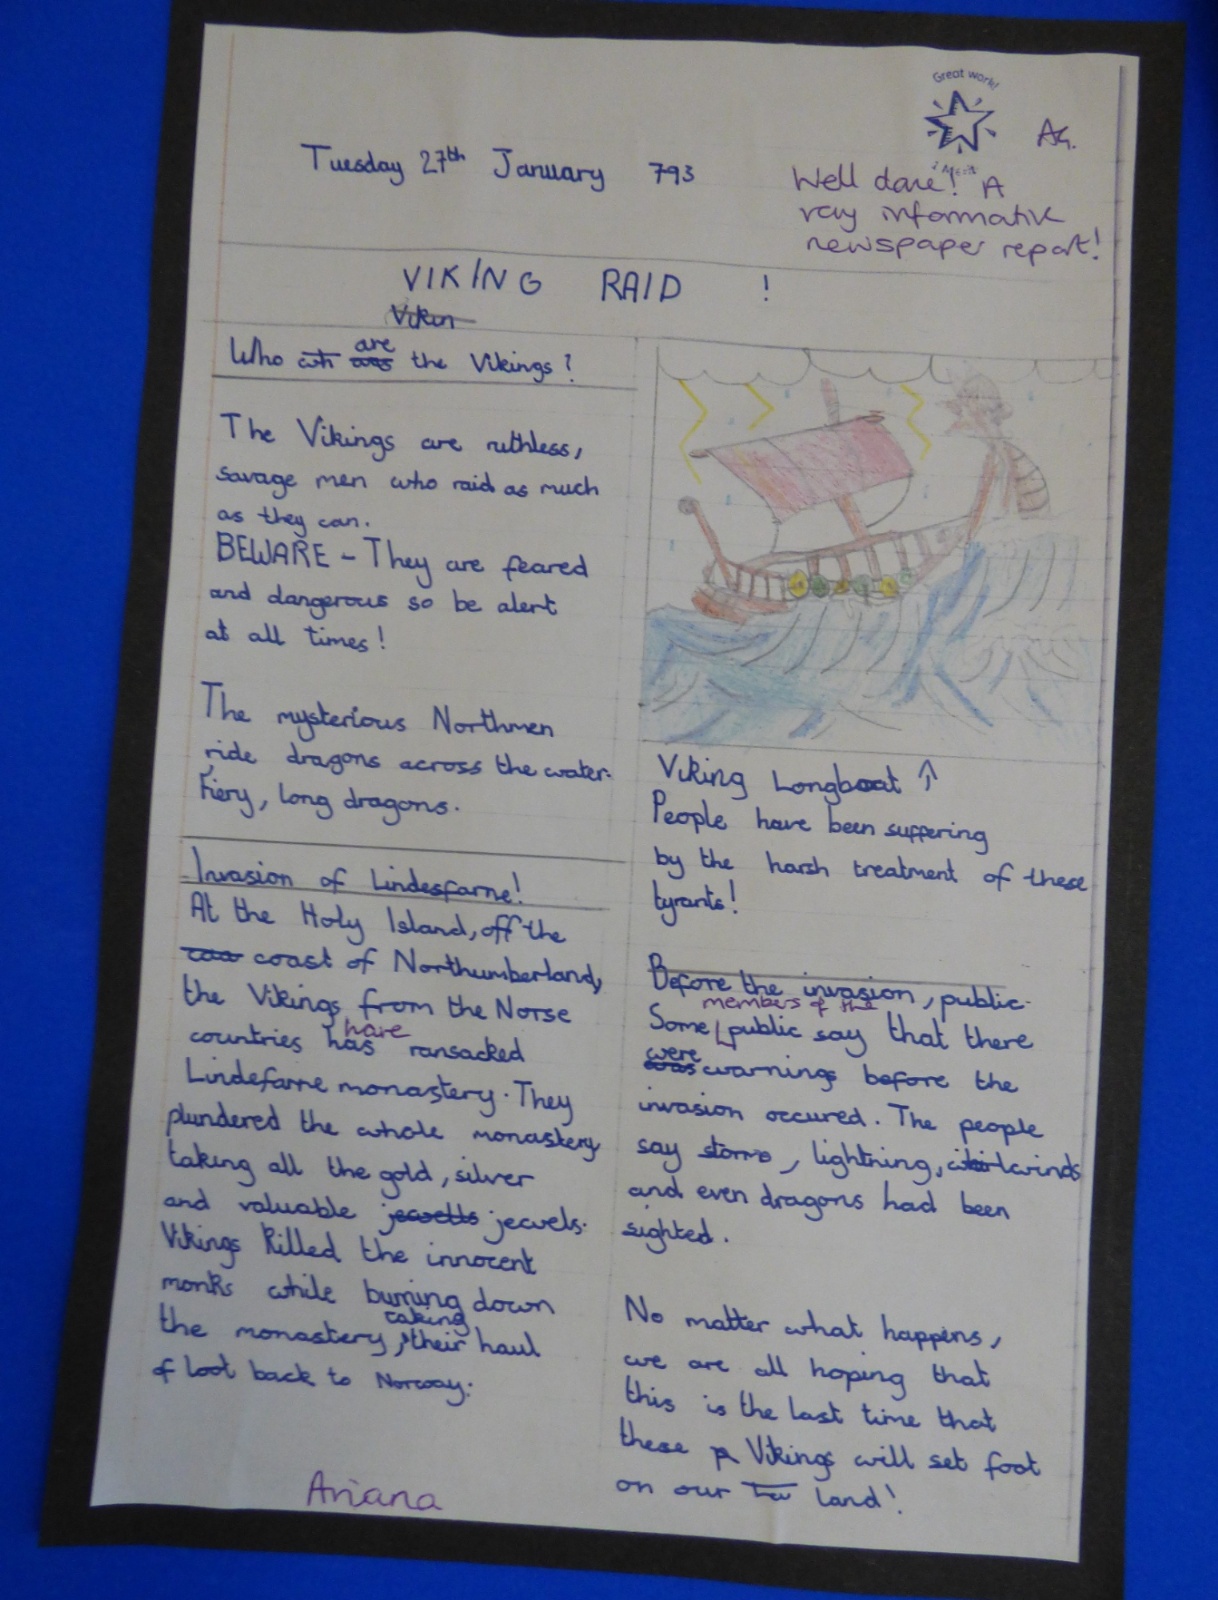 Great work!
1 Merit
AG.
Tuesday 27th January 793
Well done! A
very informative
newspaper report!
VIKING RAID !
Vikin
Who wh was are the Vikings?
The Vikings are ruthless,
savage men who raid as much
as they can.
BEWARE - They are feared
and dangerous so be alert
at all times!
The mysterious Northmen
ride dragons across the water.
Fiery, long dragons.
Invasion of Lindesfarne!
At the Holy Island, off the
coa coast of Northumberland,
the Vikings from the Norse
countries has have ransacked
Lindefarne monastery. They
plundered the whole monastery
taking all the gold, silver
and valuable jewells jewels.
Vikings killed the innocent
monks while burning down
the monastery, taking their haul
of loot back to Norway.
Ariana
Viking Longboat ↑
People have been suffering
by the harsh treatment of these
tyrants!
Before the invasion, public
Some members of the public say that there
was were warnings before the
invasion occured. The people
say storms, lightning, whirlwinds
and even dragons had been
sighted.
No matter what happens,
we are all hoping that
this is the last time that
these Vikings will set foot
on our land!